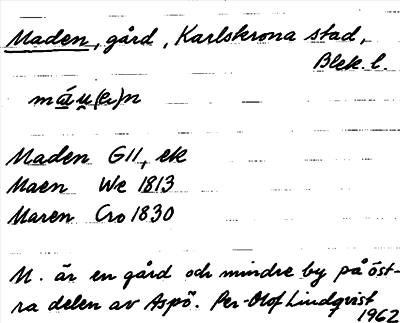 Maden, gård, Karlskrona stad,
Blek. l.
máu̯(e)n
Maden G11, ek
Maen We 1813
Maren Cro 1830
M. är en gård och mindre by på öst-
ra delen av Aspö. Per-Olof Lindqvist
1962